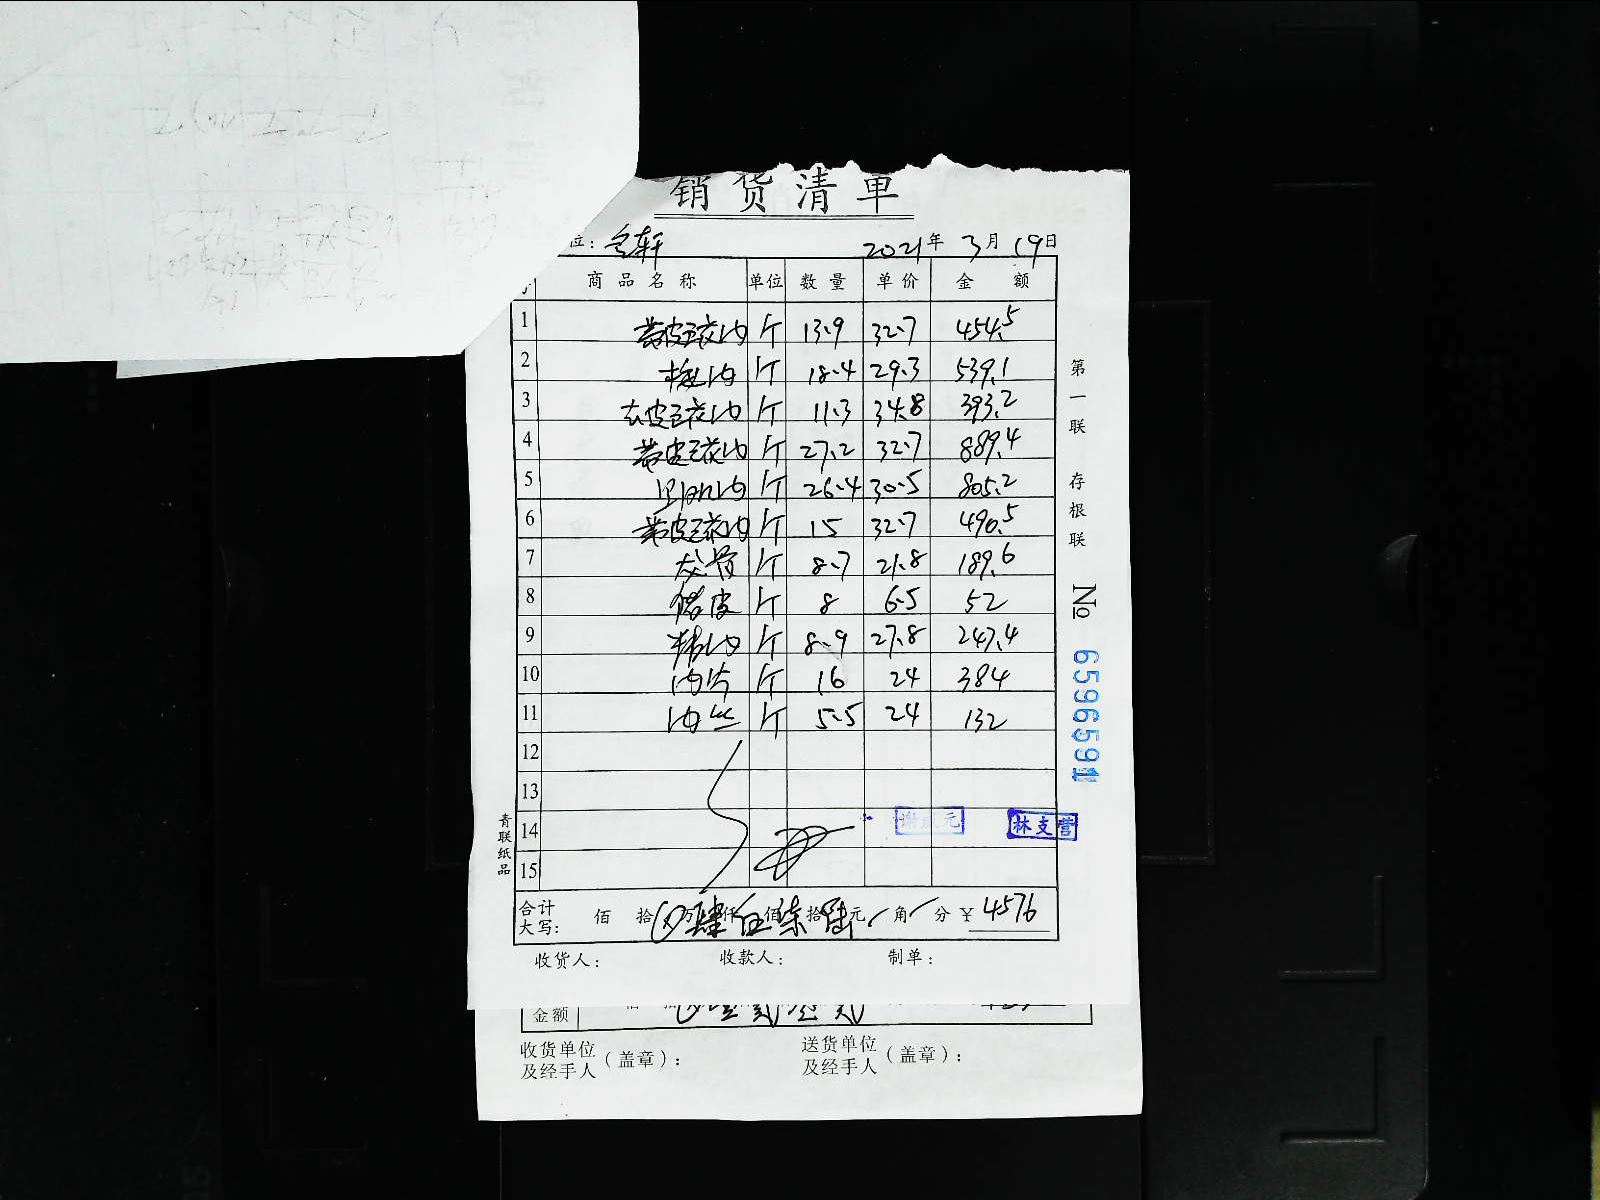 销货清单
位：仝轩 2021年3月19日
商品名称 单位 数量 单价 金额
1 带皮五花肉 斤 13.9 32.7 454.5
2 梅肉 斤 18.4 29.3 539.1
3 去皮五花肉 斤 11.3 34.8 393.2
4 带皮五花肉 斤 27.2 32.7 889.4
5 斤 26.4 30.5 805.2
6 带皮五花肉 斤 15 32.7 490.5
7 龙骨 斤 8.7 21.8 189.6
8 猪皮 斤 8 6.5 52
9 精肉 斤 8.9 27.8 247.4
10 肉片 斤 16 24 384
11 肉丝 斤 5.5 24 132
12
13
14
15
林支营
合计大写： 佰 拾 万肆仟伍佰柒拾陆元 角 分 ¥4576
收货人： 收款人： 制单：
第一联 存根联
№ 6596591
青联纸品
金额
收货单位及经手人（盖章）： 送货单位及经手人（盖章）：